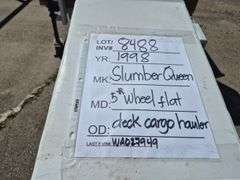 LOT/ INV# 8488
YR: 1998
MK: Slumber Queen
MD: 5th Wheel flat
OD: deck cargo hauler
LAST 8 VIN# WA027949